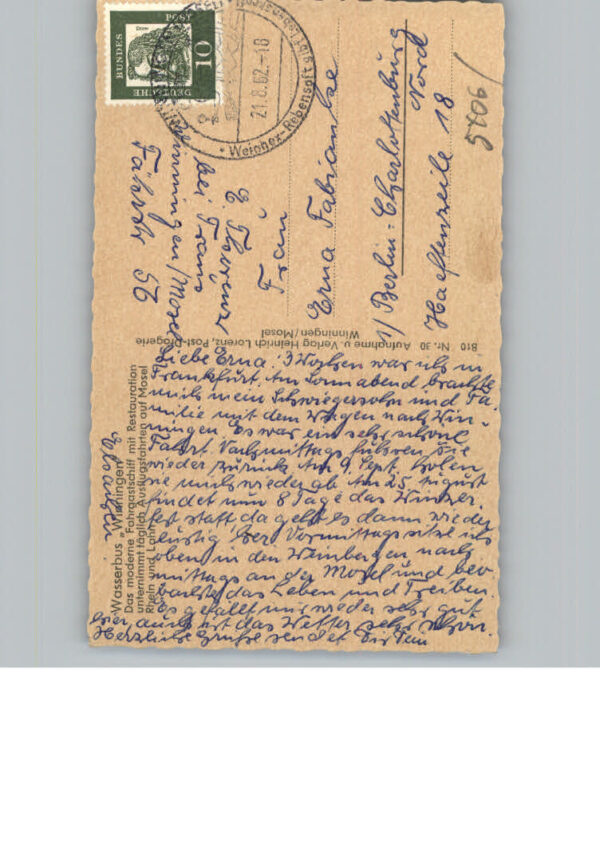 BUNDES
POST
DEUTSCHE
10
21.8.62.-18
E. Thorenz
bei Frans
Winningen/Mosel
Fährstr 56
Frau
Erna Fabianke
1/ Berlin-Charlottenburg
Nord
18
5406/
B10 Nr. 30 Aufnahme u. Verlag Heinrich Lorenz, Post-Drogerie
Winningen/Mosel
Wasserbus „Winningen"
Das moderne Fahrgastschiff mit Restauration
unternimmt täglich Ausflugsfahrten auf Mosel
Rhein und Lahn
Liebe Erna! 3 Wochen war ich in
Frankfurt. Am Sonnabend brachte
mich mein Schwiegersohn und Fa-
milie mit dem Wagen nach Win-
ningen. Es war ein sehr schöne
Fahrt. Nachmittags fuhren sie
wieder zurück. Am 9. Sept. holen
sie mich wieder ab. Am 25. August
findet nun 8 Tage das Winzer-
fest statt da geht es dann wieder
lustig her. Vormittags sitze ich
oben in den Weinbergen nach-
mittags an der Mosel und beo-
bachte das Leben und Treiben.
Es gefällt mir wieder sehr gut
hier, auch ist das Wetter sehr schön.
Herzliche Grüße sendet Dir Dein